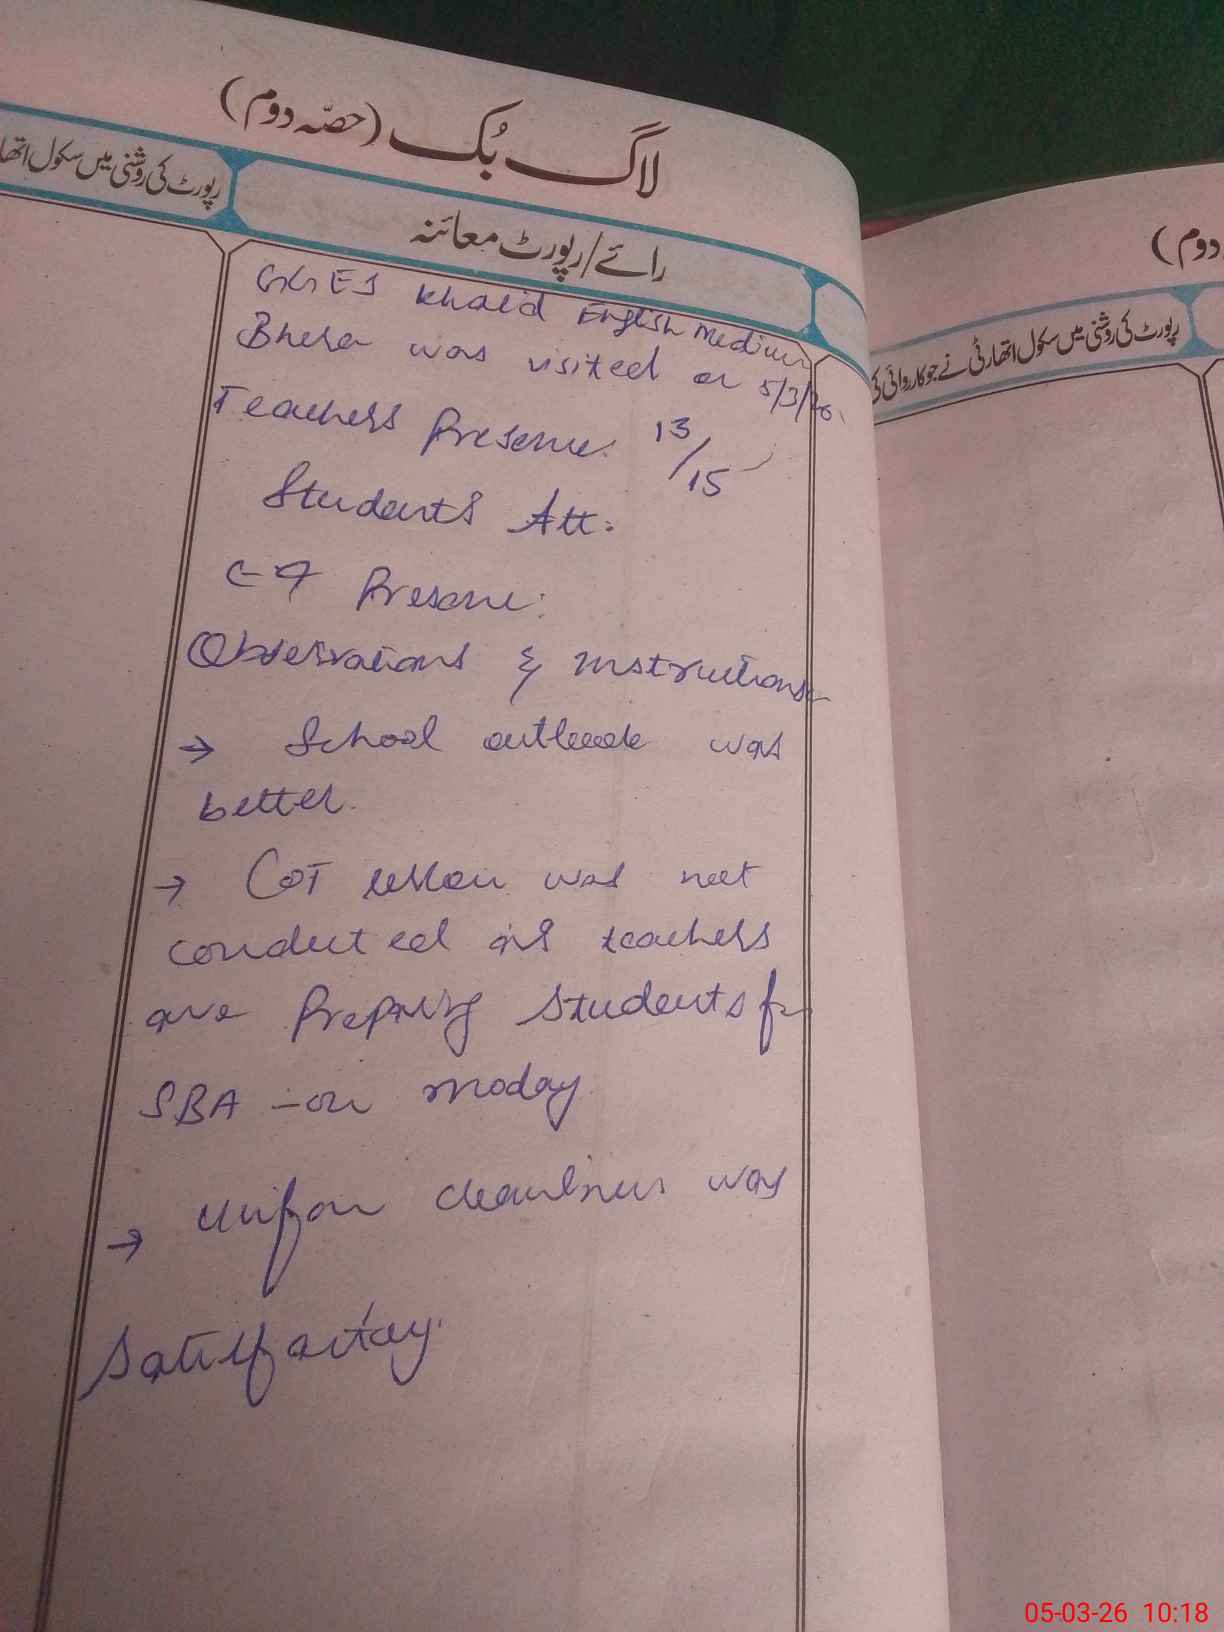 لاگ بُک (حصّہ دوم)
رپورٹ کی روشنی میں سکول اتھا
رائے/رپورٹ معائنہ
Khalid English Medium
Bhera was visited on 5/3/26
Teachers Presence: 13/15
Students Att:
Presence:
Observations & instructions
→ School outlook was
better.
→ COT lesson was not
conducted as teachers
are Preparing Students for
SBA - on moday
→ unifom cleanliness was
Satisfactory.
دوم)
رپورٹ کی روشنی میں سکول اتھارٹی نے جو کارروائی کی
05-03-26 10:18